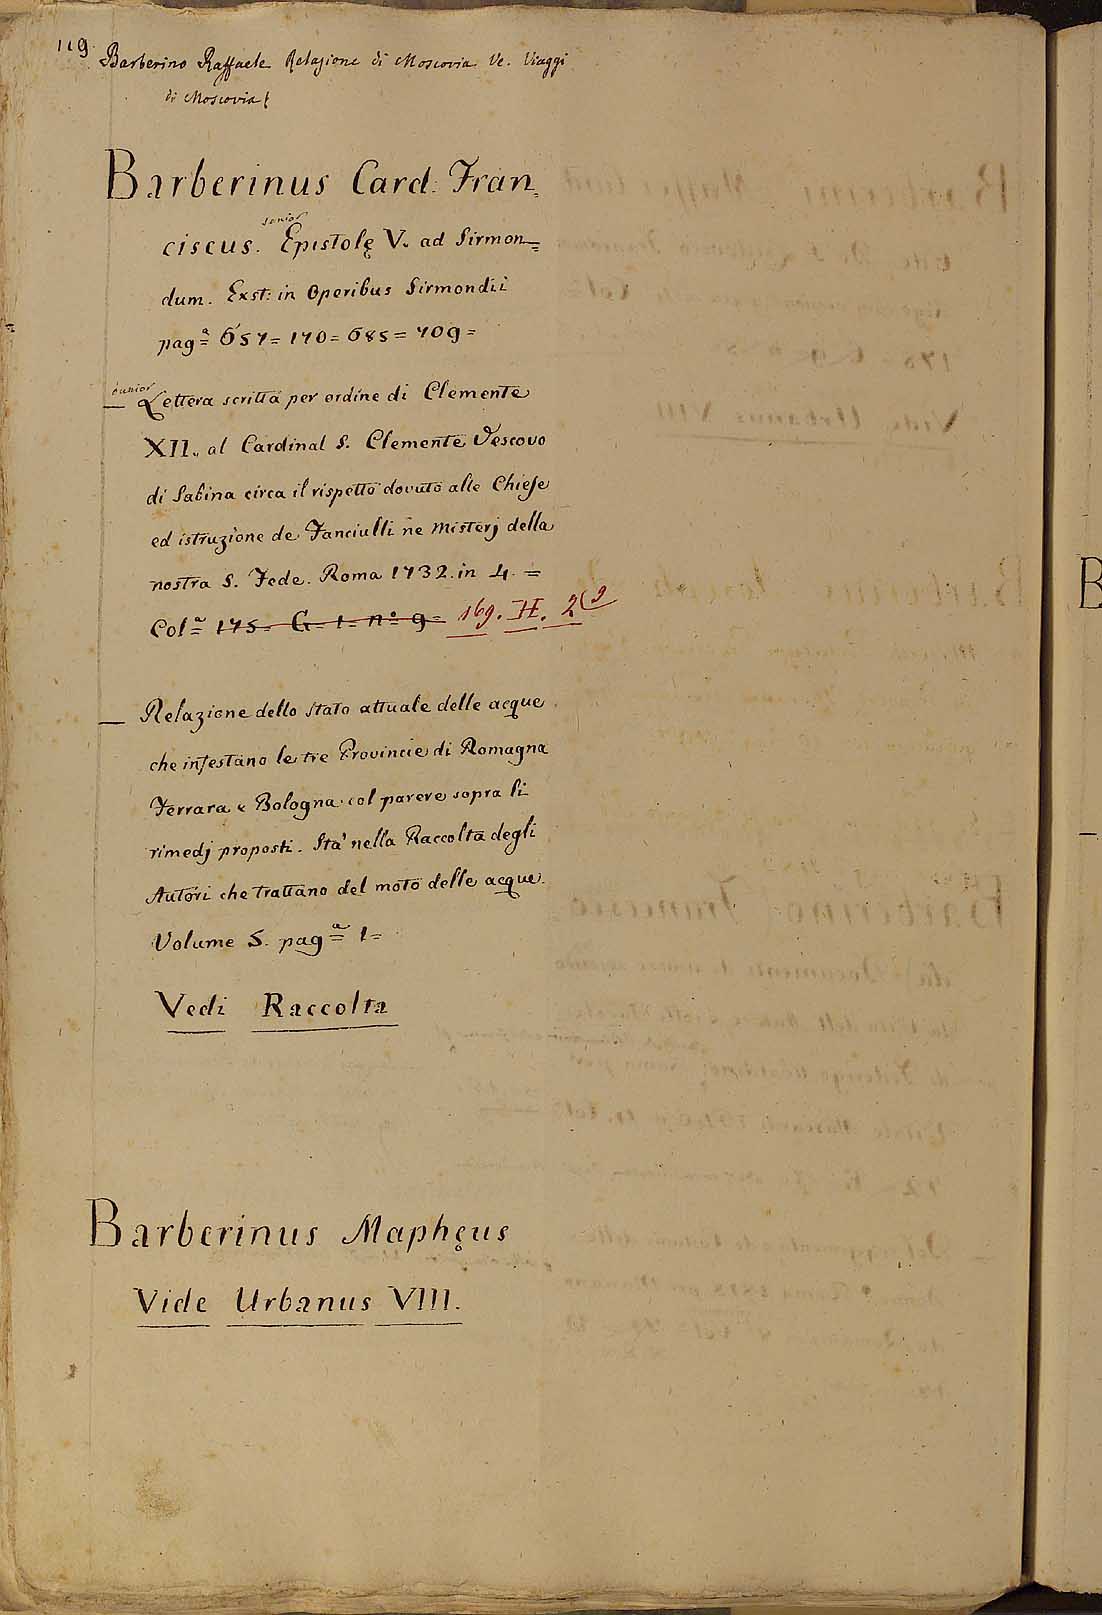 119.
Barberino Raffaele Relazione di Moscovia Ve. Viaggi
di Moscovia
Barberinus Card: Fran=
senior
ciscus. Epistolę V. ad Sirmon=
dum. Exst: in Operibus Sirmondii
pagª= 657= 170= 685= 709=
Junior
— Lettera scritta per ordine di Clemente
XII. al Cardinal S. Clemente Vescovo
di Sabina circa il rispetto dovuto alle Chiese
ed istruzione de Fanciulli ne Misterj della
nostra S. Fede. Roma 1732. in 4. =
Colª= 175= G= 1= n°= 9= 169. H. 2(9
— Relazione dello stato attuale delle acque
che infestano le tre Provincie di Romagna
Ferrara e Bologna col parere sopra li
rimedj proposti. Sta' nella Raccolta degli
Autori che trattano del moto delle acque.
Volume 5. pagª= 1=
Vedi Raccolta
Barberinus Maphęus
Vide Urbanus VIII.
B
—